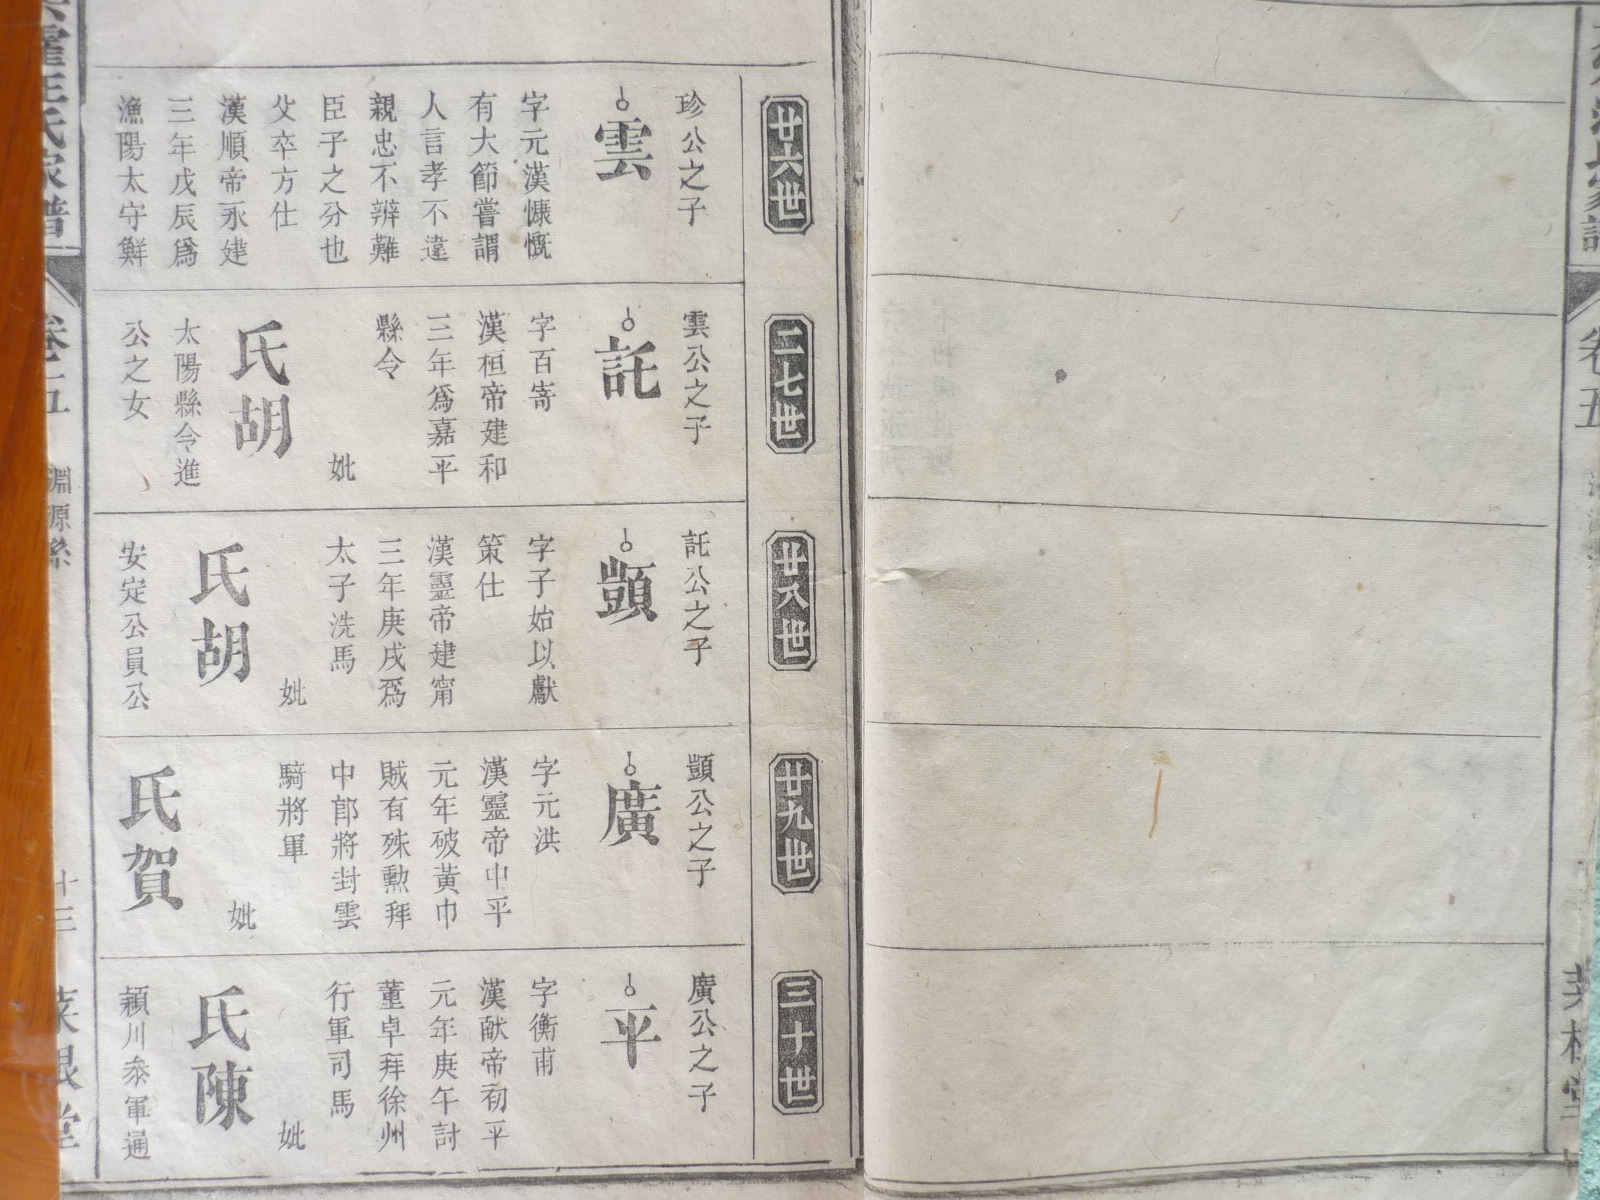 廿六世
珍公之子
雲
字元漢慷慨
有大節嘗謂
人言孝不違
親忠不辨難
臣子之分也
父卒方仕
漢順帝永建
三年戊辰爲
漁陽太守鮮
二七世
雲公之子
託
字百寄
漢桓帝建和
三年爲嘉平
縣令
妣
氏胡
太陽縣令進
公之女
廿八世
託公之子
顗
字子始以獻
策仕
漢靈帝建甯
三年庚戌爲
太子洗馬
妣
氏胡
安定公員公
廿九世
顗公之子
廣
字元洪
漢靈帝中平
元年破黃巾
賊有殊勲拜
中郎將封雲
騎將軍
妣
氏賀
三十世
廣公之子
平
字衡甫
漢献帝初平
元年庚午討
董卓拜徐州
行軍司馬
妣
氏陳
穎川叅軍通
卷五
淵源系
十三
卷五